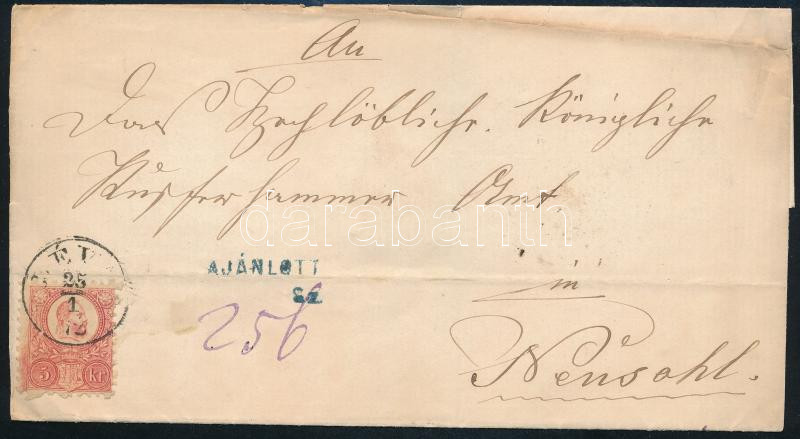 An
Das Hochlöbliche. Königliche
Kupferhammer Amt.
darabanth
AJÁNLOTT
Sz.
in
25
1
72
256
Neüsohl.
5 kr